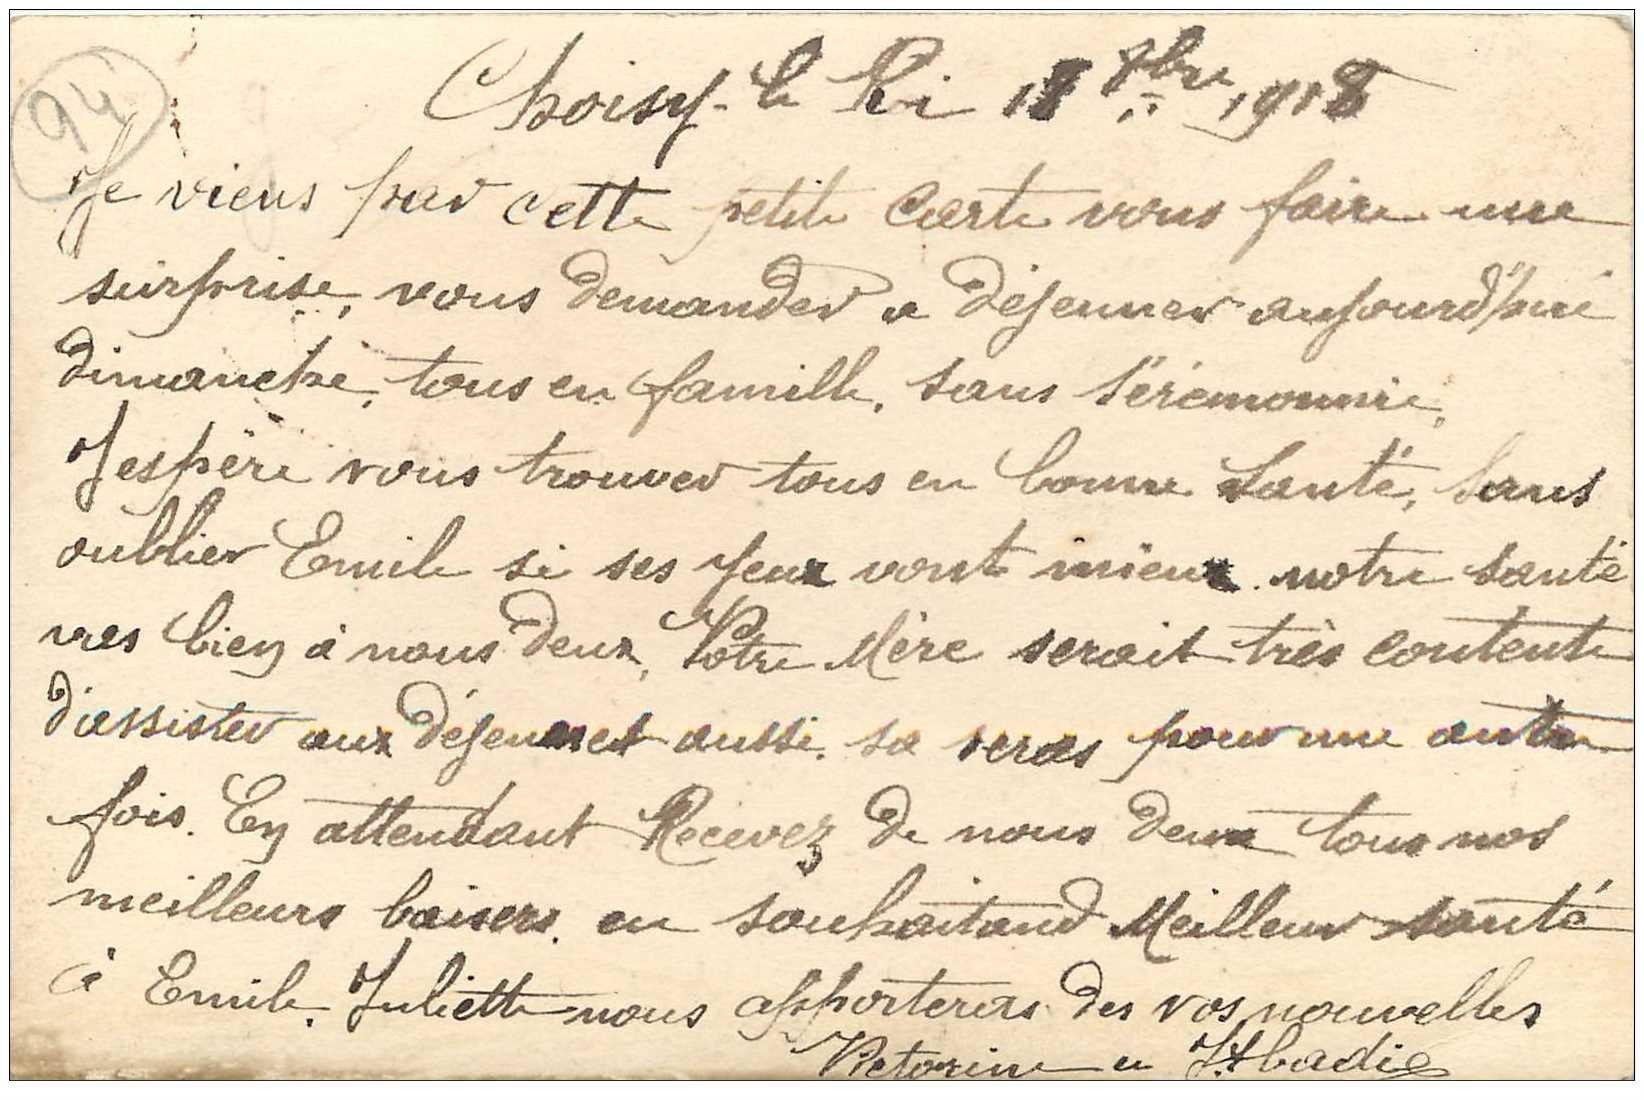 94
Choisy-le Roi 18 8bre 1918
Je viens par cette petite Carte vous faire une
surprise, vous demander a déjeuner aujourd'hui
dimanche, tous en famille, sans sérémonnie,
J'espère vous trouver tous en bonne Santé, Sans
oublier Emile si ses yeux vont mieux. notre santé
vres bien à nous deux, Votre Mère serait très contente
d'assister aux Déjeuner et aussi. sa seras pour une autre
fois. En attendant Recevez de nous deux tous nos
meilleurs baisers. en souhaitand Meilleur santé
à Emile. Juliette nous apporteras des vos nouvelles
Victorine et J. Abadie